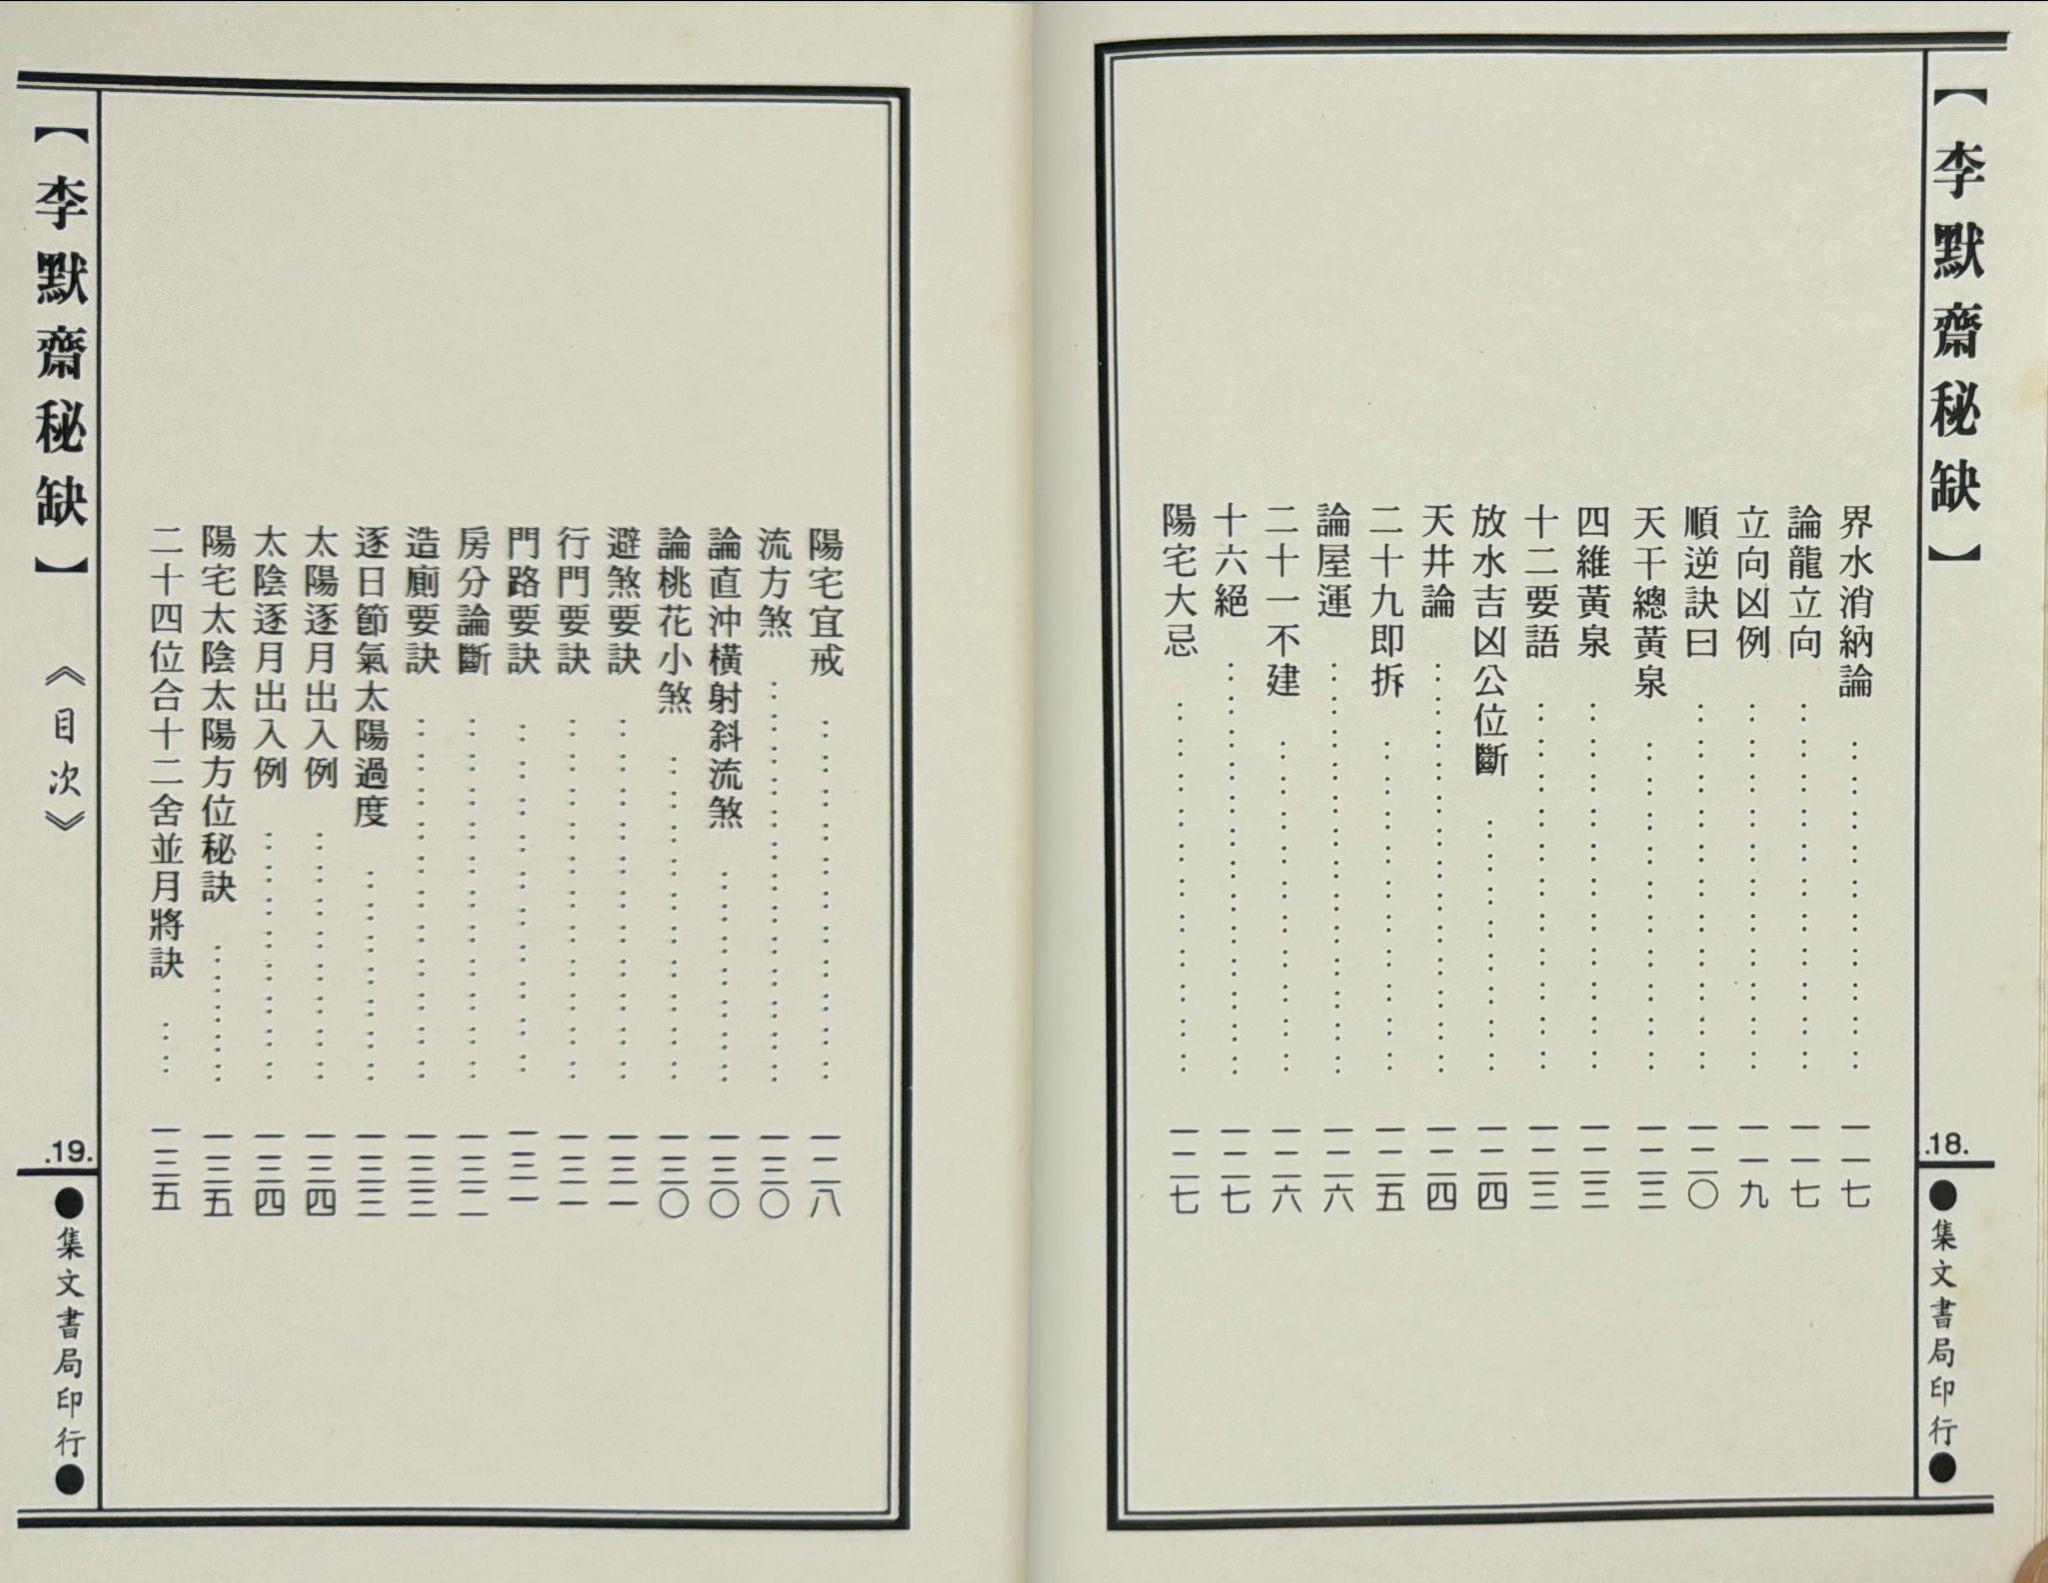 【李默齋秘缺】
.18.
●集文書局印行●
界水消納論……一一七
論龍立向……一一七
立向凶例……一一九
順逆訣曰……一二〇
天干總黃泉……一二三
四維黃泉……一二三
十二要語……一二三
放水吉凶公位斷……一二四
天井論……一二四
二十九即拆……一二五
論屋運……一二六
二十一不建……一二六
十六絕……一二七
陽宅大忌……一二七
陽宅宜戒……一二八
流方煞……一三〇
論直沖橫射斜流煞……一三〇
論桃花小煞……一三〇
避煞要訣……一三一
行門要訣……一三一
門路要訣……一三一
房分論斷……一三二
造廁要訣……一三三
逐日節氣太陽過度……一三三
太陽逐月出入例……一三四
太陰逐月出入例……一三四
陽宅太陰太陽方位秘訣……一三五
二十四位合十二舍並月將訣……一三五
【李默齋秘缺】
《目次》
.19.
●集文書局印行●